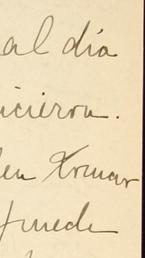 al día
icieron.
en tomar
puede